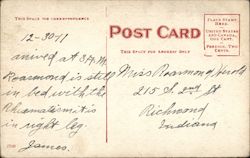 THIS SPACE FOR CORRESPONDENCE
POST CARD
THIS SPACE FOR ADDRESS ONLY
PLACE STAMP
HERE.
UNITED STATES
AND CANADA,
ONE CENT.
FOREIGN, TWO
CENTS.
12-30 11
arrived at 3 P.M.
is still
in bed with the
Rheumatism it is
in right leg.
James.
Miss Rosamond
215 S. 2nd St
Richmond
Indiana